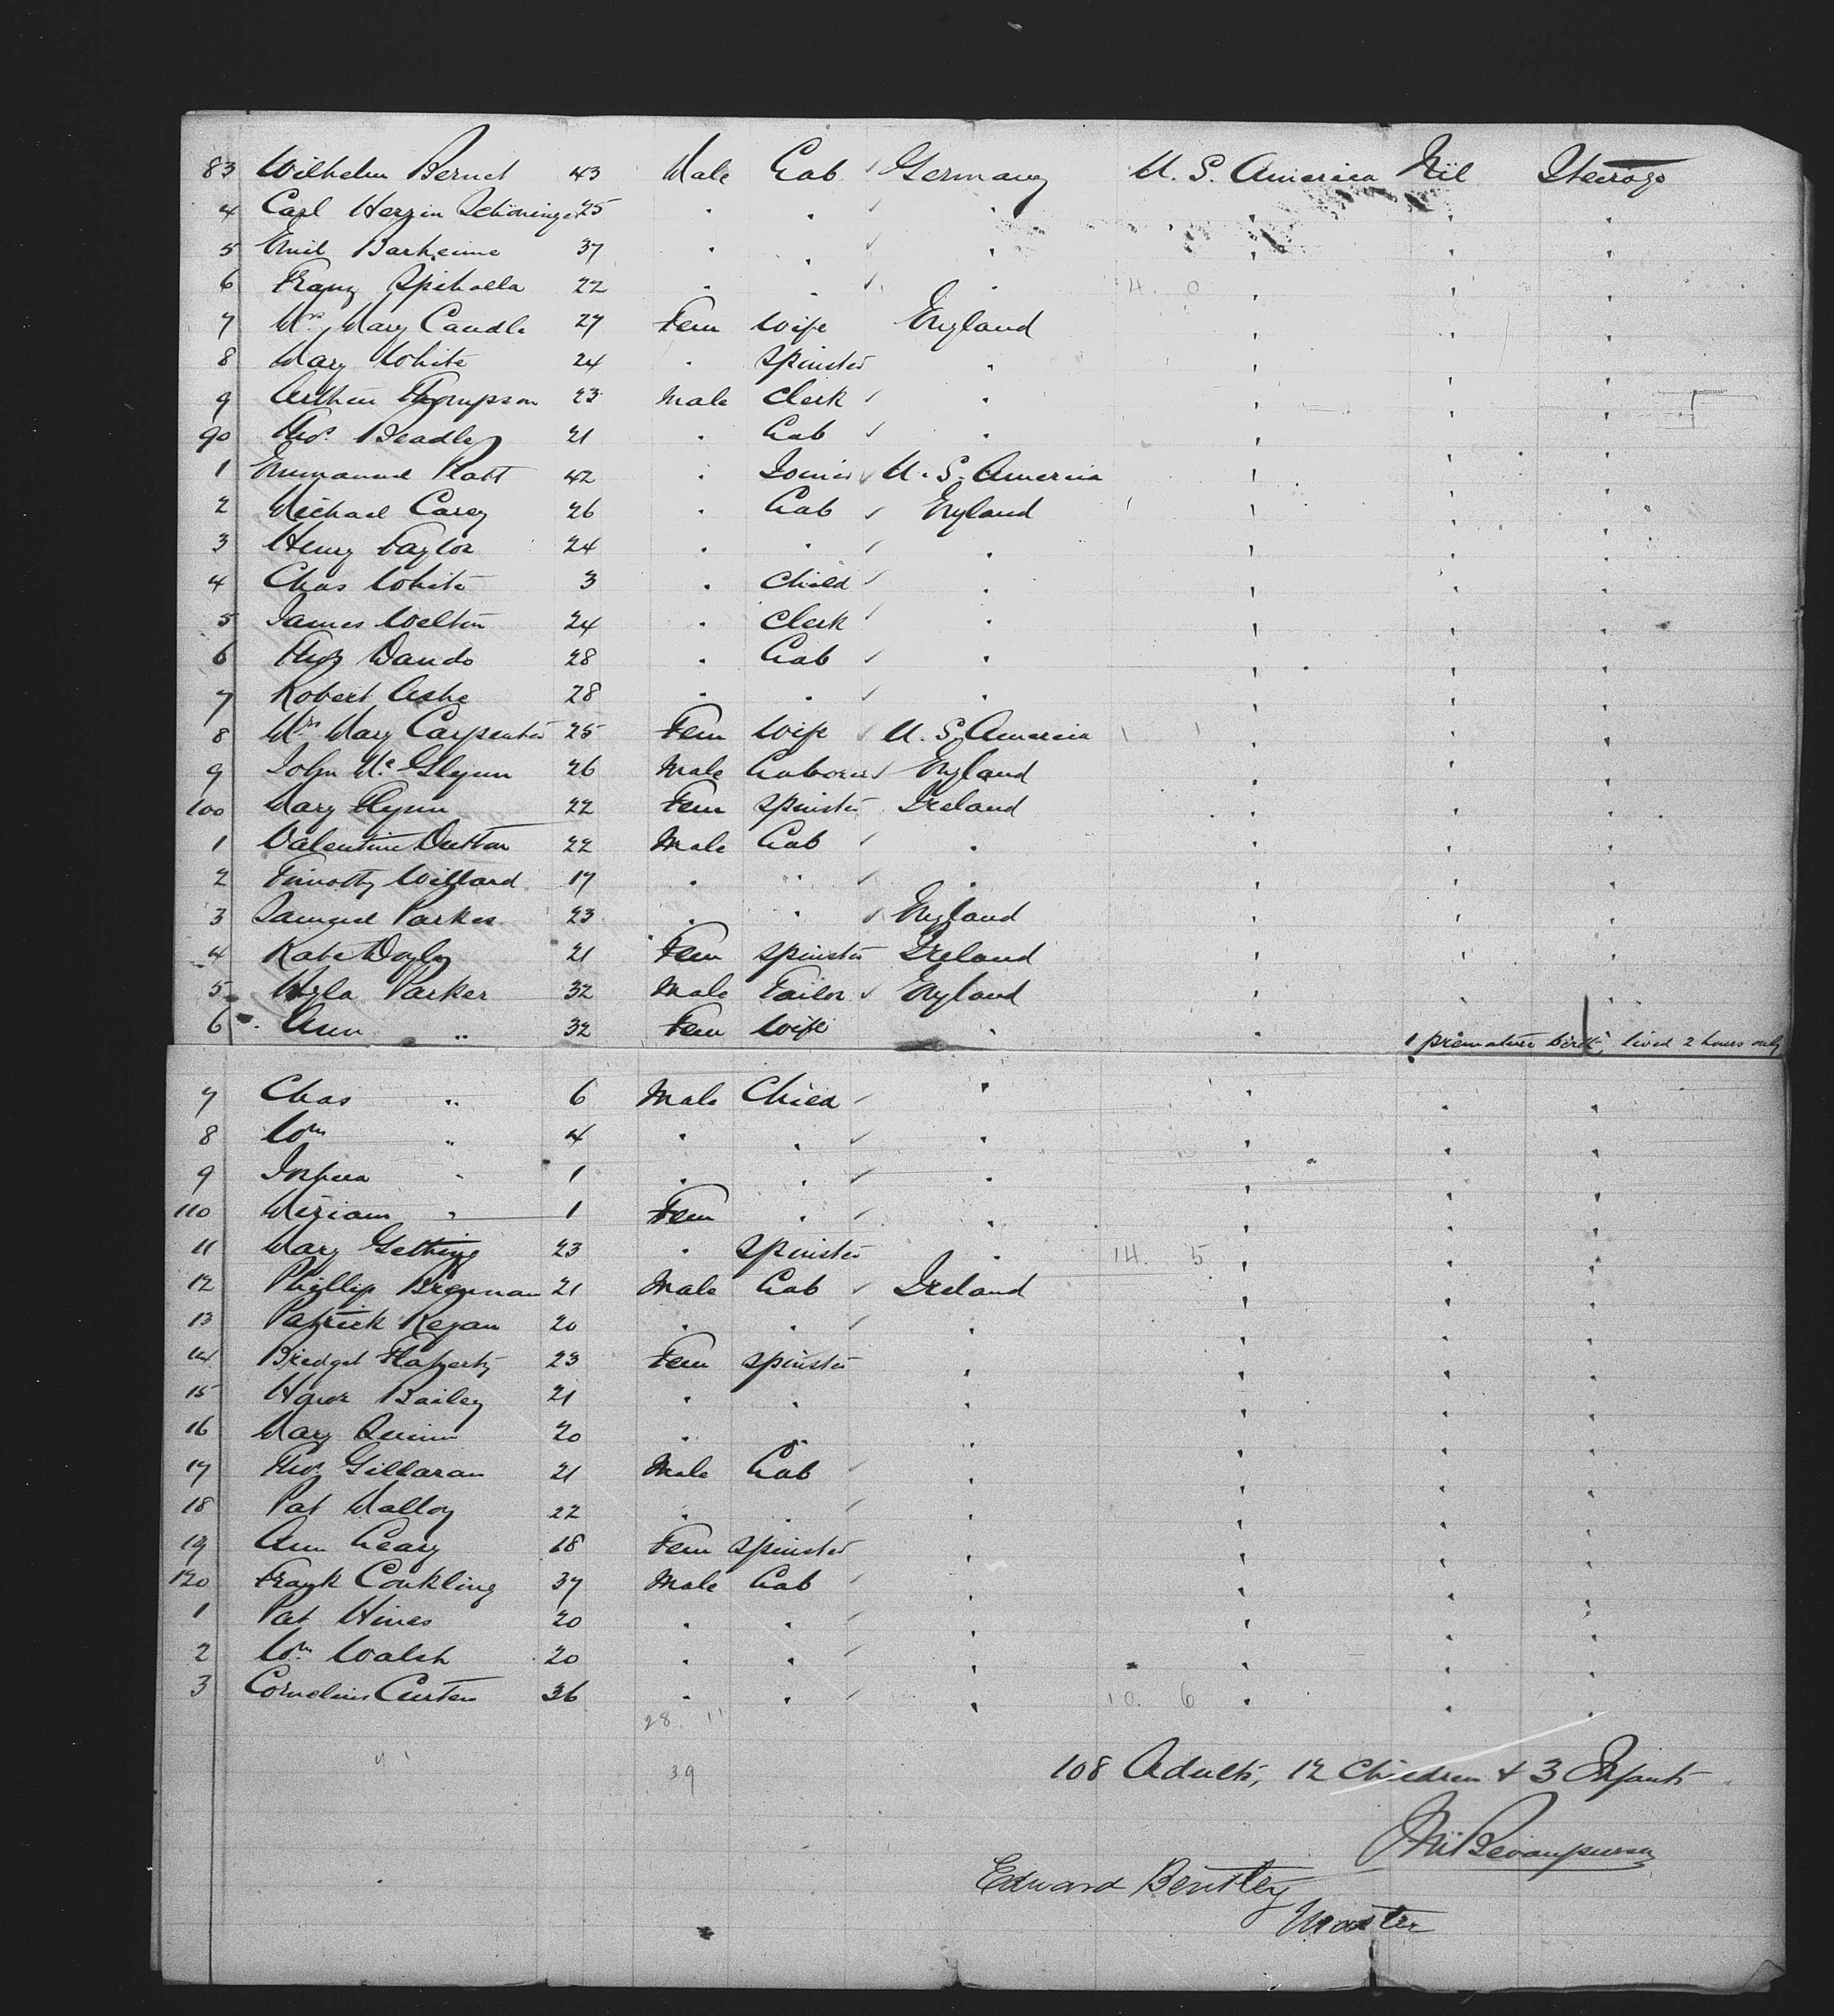 83 Wilhelm Bernet 43 Male Lab Germany U. S. America Nil Steerage
4 Carl Schöninger 25 " " " " " "
5 Emil 37 " " " " " "
6 Franz 22 " " " 4. 0 " " "
7 Mrs Mary Caudle 27 Fem Wife England " " "
8 Mary White 24 " Spinster " " " "
9 Arthur Thompson 23 Male Clerk " " " "
90 Thos Beadley 21 " Lab " " " "
1 Emmanuel Platt 42 " Joiner U. S. America " " "
2 Michael Carey 26 " Lab England " " "
3 Henry Taylor 24 " " " " " "
4 Chas White 3 " Child " " " "
5 James Welton 24 " Clerk " " " "
6 Thos Dando 28 " Lab " " " "
7 Robert Ashe 28 " " " " " "
8 Mrs Mary Carpenter 25 Fem Wife U. S. America " " "
9 John McGlynn 26 Male Laborer England " " "
100 Mary Flynn 22 Fem Spinster Ireland " " "
1 Valentine Dutton 22 Male Lab " " " "
2 Timothy Willard 17 " " " " " "
3 Samuel Parkes 23 " " England " " "
4 Kate Doyle 21 Fem Spinster Ireland " " "
5 Parker 32 Male Tailor England " " "
6 Ann " 32 Fem Wife " " 1 premature birth, lived 2 hours only
7 Chas " 6 Male Child " " " "
8 Wm " 4 " " " " " "
9 Joshua " 1 " " " " " "
110 Miriam " 1 Fem " " " " "
11 Mary Gething 23 " Spinster " 14. 5 " " "
12 Phillip Brennan 21 Male Lab Ireland " " "
13 Patrick Regan 20 " " " " " "
14 Bridget Flaherty 23 Fem Spinster " " " "
15 Honor Bailey 21 " " " " " "
16 Mary Quinn 20 " " " " " "
17 Thos Gillaran 21 Male Lab " " " "
18 Pat Malloy 22 " " " " " "
19 Ann Leary 18 Fem Spinster " " " "
120 Frank Conkling 37 Male Lab " " " "
1 Pat Hines 20 " " " " " "
2 Wm Walsh 20 " " " " " "
3 Cornelius Curten 36 " " " 10. 6 " " "
28. 11
39
108 Adults, 12 Children & 3 Infants
Edward Bentley
Master